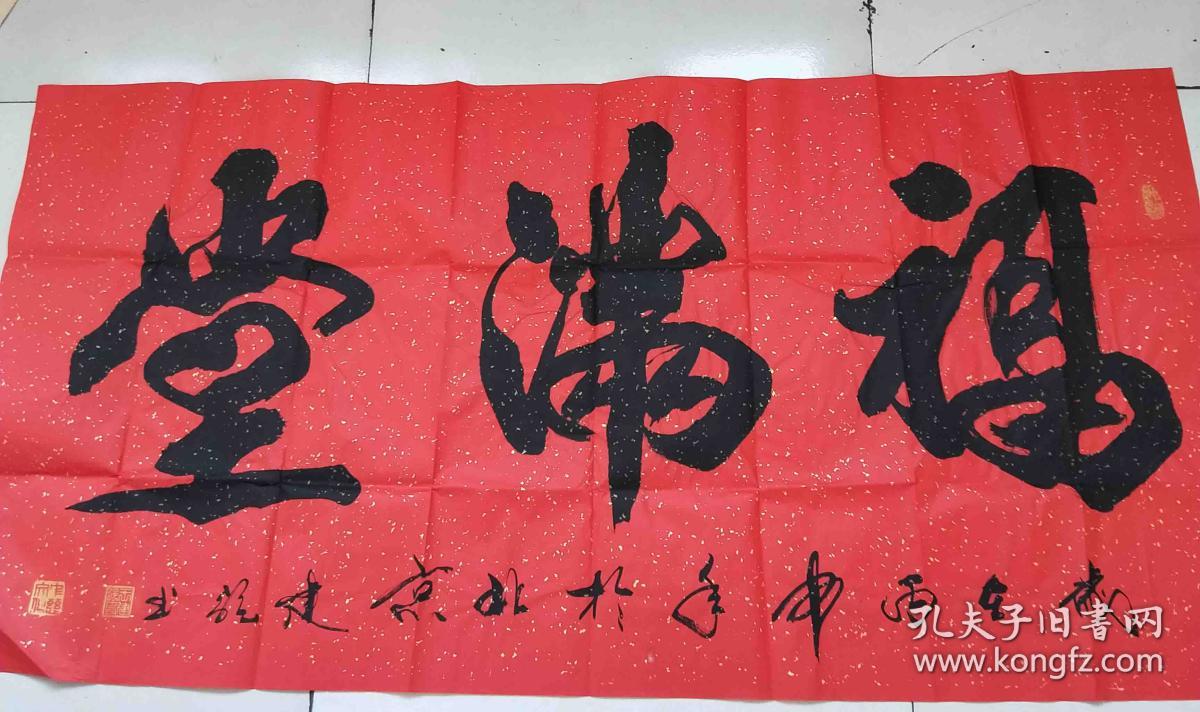 福满堂
岁在丙申年于北京建龙书
孔夫子旧书网
www.kongfz.com